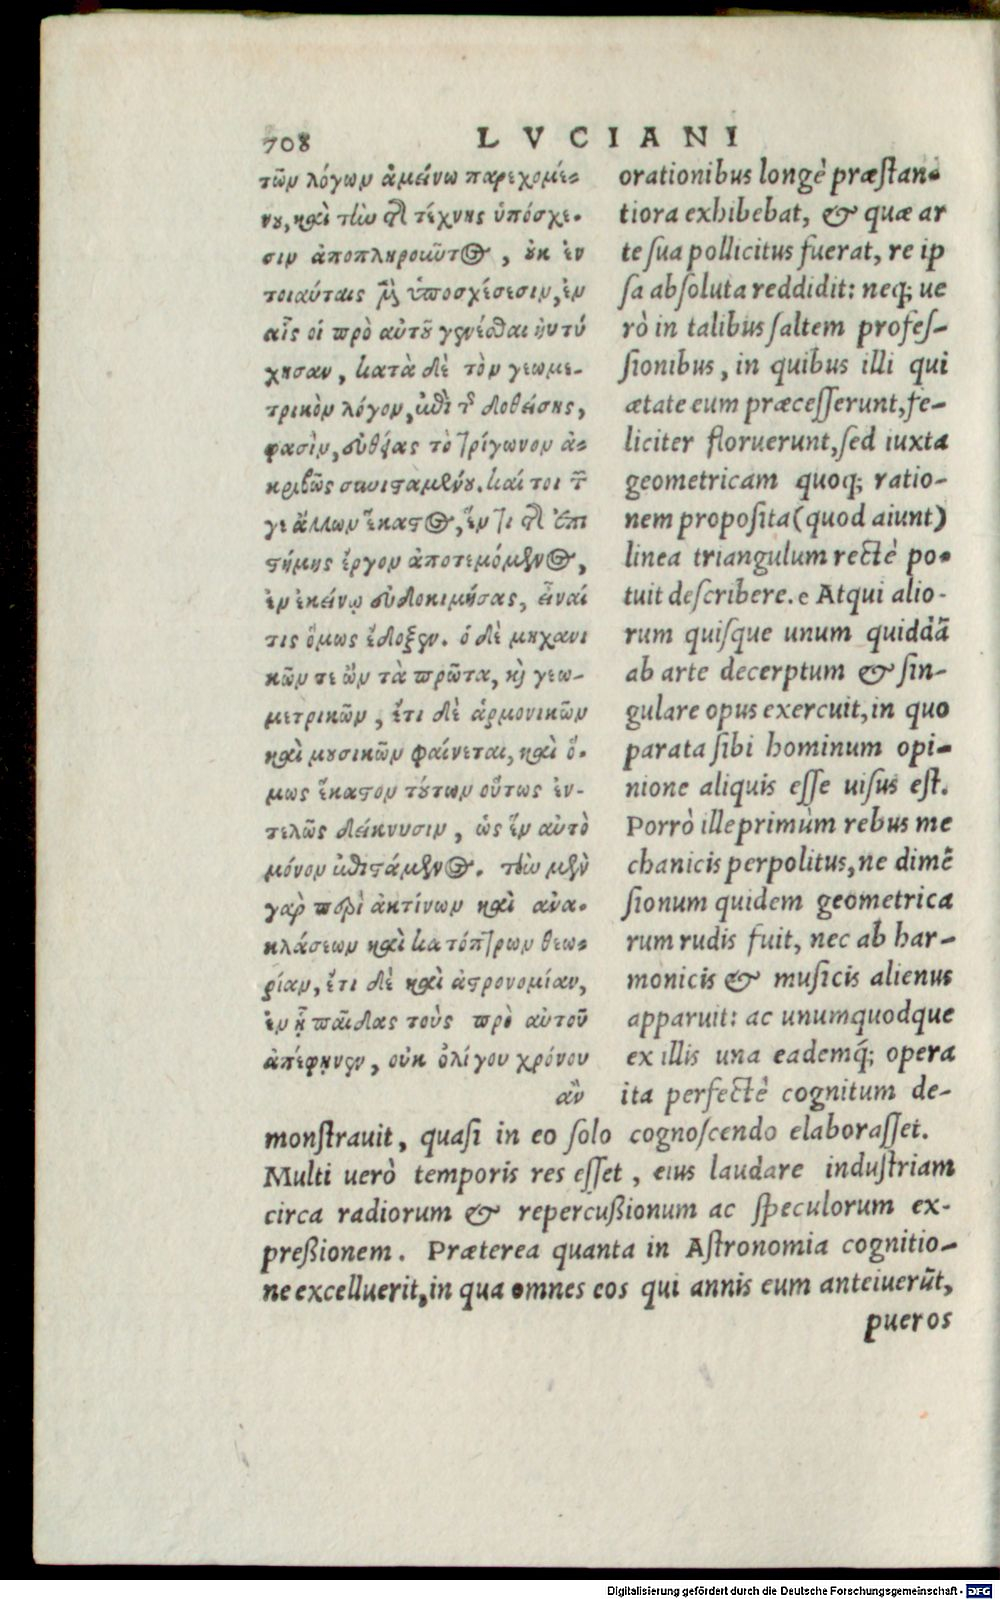 708 LVCIANI
τῶν λόγων ἀμείνω παρεχομέ-
νȣ, καὶ τὴν τῆς τέχνης ὑπόσχε-
σιν ἀποπληροῦντος, ȣκ ἐν
τοιαύταις μὲν ὑποσχέσεσιν, ἐν
αἷς οἱ πρὸ αὐτȣ͂ γενέσθαι ηὐτύ
χησαν, κατὰ δὲ τὸν γεωμε-
τρικὸν λόγον, ἐπὶ τῆς δοθείσης,
φασὶν, εὐθείας τὸ τρίγωνον ἀ-
κριβῶς συνισταμένȣ. καίτοι τῶν
γε ἄλλων ἕκαστος, ἕν τι τῆς ἐπι
στήμης ἔργον ἀποτεμόμενος,
ἐν ἐκείνῳ εὐδοκιμήσας, εἶναί
τις ὅμως ἔδοξεν. ὁ δὲ μηχανι
κῶν τε ὢν τὰ πρῶτα, καὶ γεω-
μετρικῶν, ἔτι δὲ ἁρμονικῶν
καὶ μȣσικῶν φαίνεται, καὶ ὅ-
μως ἕκαστον τȣ́των οὕτως ἐν-
τελῶς δείκνυσιν, ὡς ἓν αὐτὸ
μόνον ἐπιστάμενος. τὴν μὲν
γὰρ περὶ ἀκτίνων καὶ ἀνα-
κλάσεων καὶ κατόπτρων θεω-
ρίαν, ἔτι δὲ καὶ ἀστρονομίαν,
ἐν ᾗ παῖδας τοὺς πρὸ αὐτοῦ
ἀπέφηνεν, οὐκ ὀλίγου χρόνου
ἂν
orationibus longè præstan-
tiora exhibebat, & quæ ar
te sua pollicitus fuerat, re ip
sa absoluta reddidit: neq; ue
rò in talibus saltem profes-
sionibus, in quibus illi qui
ætate eum præcesserunt, fe-
liciter floruerunt, sed iuxta
geometricam quoq; ratio-
nem proposita (quod aiunt)
linea triangulum rectè po-
tuit describere. e Atqui alio-
rum quisque unum quiddã
ab arte decerptum & sin-
gulare opus exercuit, in quo
parata sibi hominum opi-
nione aliquis esse uisus est.
Porrò ille primùm rebus me
chanicis perpolitus, ne dimẽ
sionum quidem geometrica
rum rudis fuit, nec ab har-
monicis & musicis alienus
apparuit: ac unumquodque
ex illis una eademq́; opera
ita perfectè cognitum de-
monstrauit, quasi in eo solo cognoscendo elaborasset.
Multi uerò temporis res esset, eius laudare industriam
circa radiorum & repercußionum ac speculorum ex-
preßionem. Præterea quanta in Astronomia cognitio-
ne excelluerit, in qua omnes eos qui annis eum anteiuerũt,
pueros
Digitalisierung gefördert durch die Deutsche Forschungsgemeinschaft - DFG